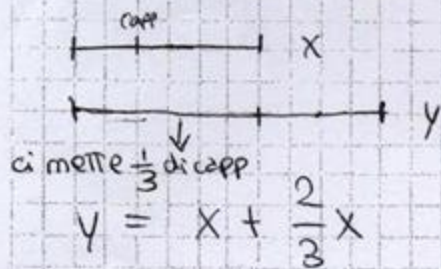 capp
x
y
ci mette 1/3 di capp
y = x + 2/3 x